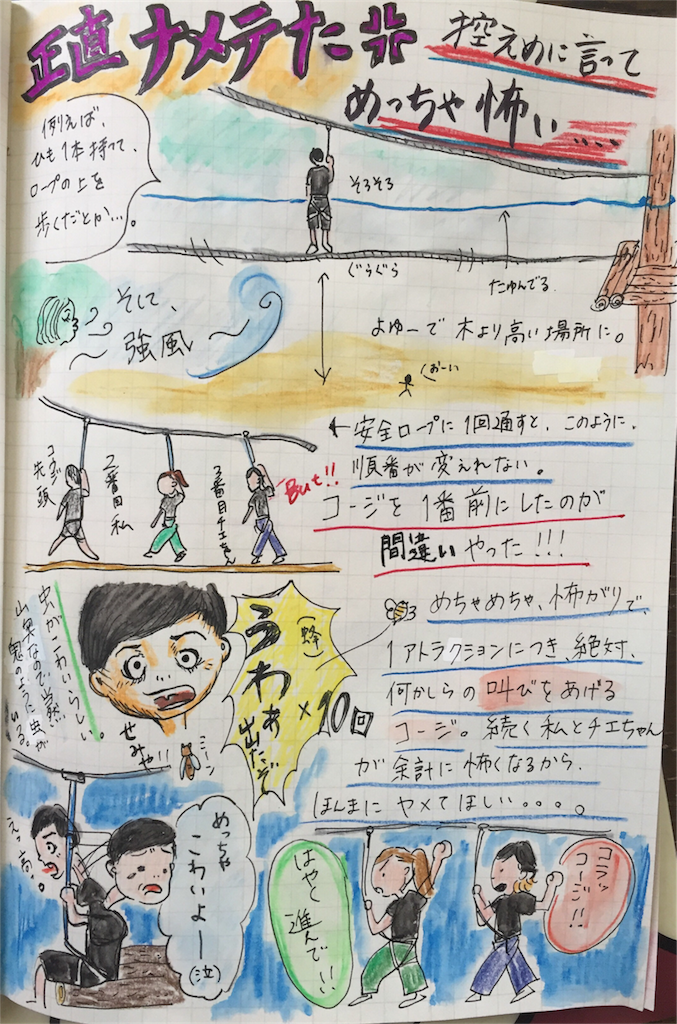 正直ナメテた
控えめに言って
めっちゃ怖い....
例えば、
ひも1本持って、
ロープの上を
歩くだとか…。
そろそろ
ぐらぐら
たゆんでる
そして、
強風
よゆーで木より高い場所に。
おーい
←安全ロープに1回通すと、このように、
順番が変えれない。
But!!
コージを1番前にしたのが
間違いやった!!!
コージ
先頭
2番目 私
3番目チエちゃん
めちゃめちゃ、怖がりで、
1アトラクションにつき、絶対、
何かしらの叫びをあげる
コージ。続く私とチエちゃん
が余計に怖くなるから、
ほんまにヤメてほしい。。。。
虫がこわいらしい。
山奥なので当然
鬼のように虫が
いる。
(蜂)
うわぁ
出たぞ
×10回
せみや!!
ミーン
えっ高。
めっちゃ
こわいよー
(泣)
はやく進んで!!
コラッ
コージ!!